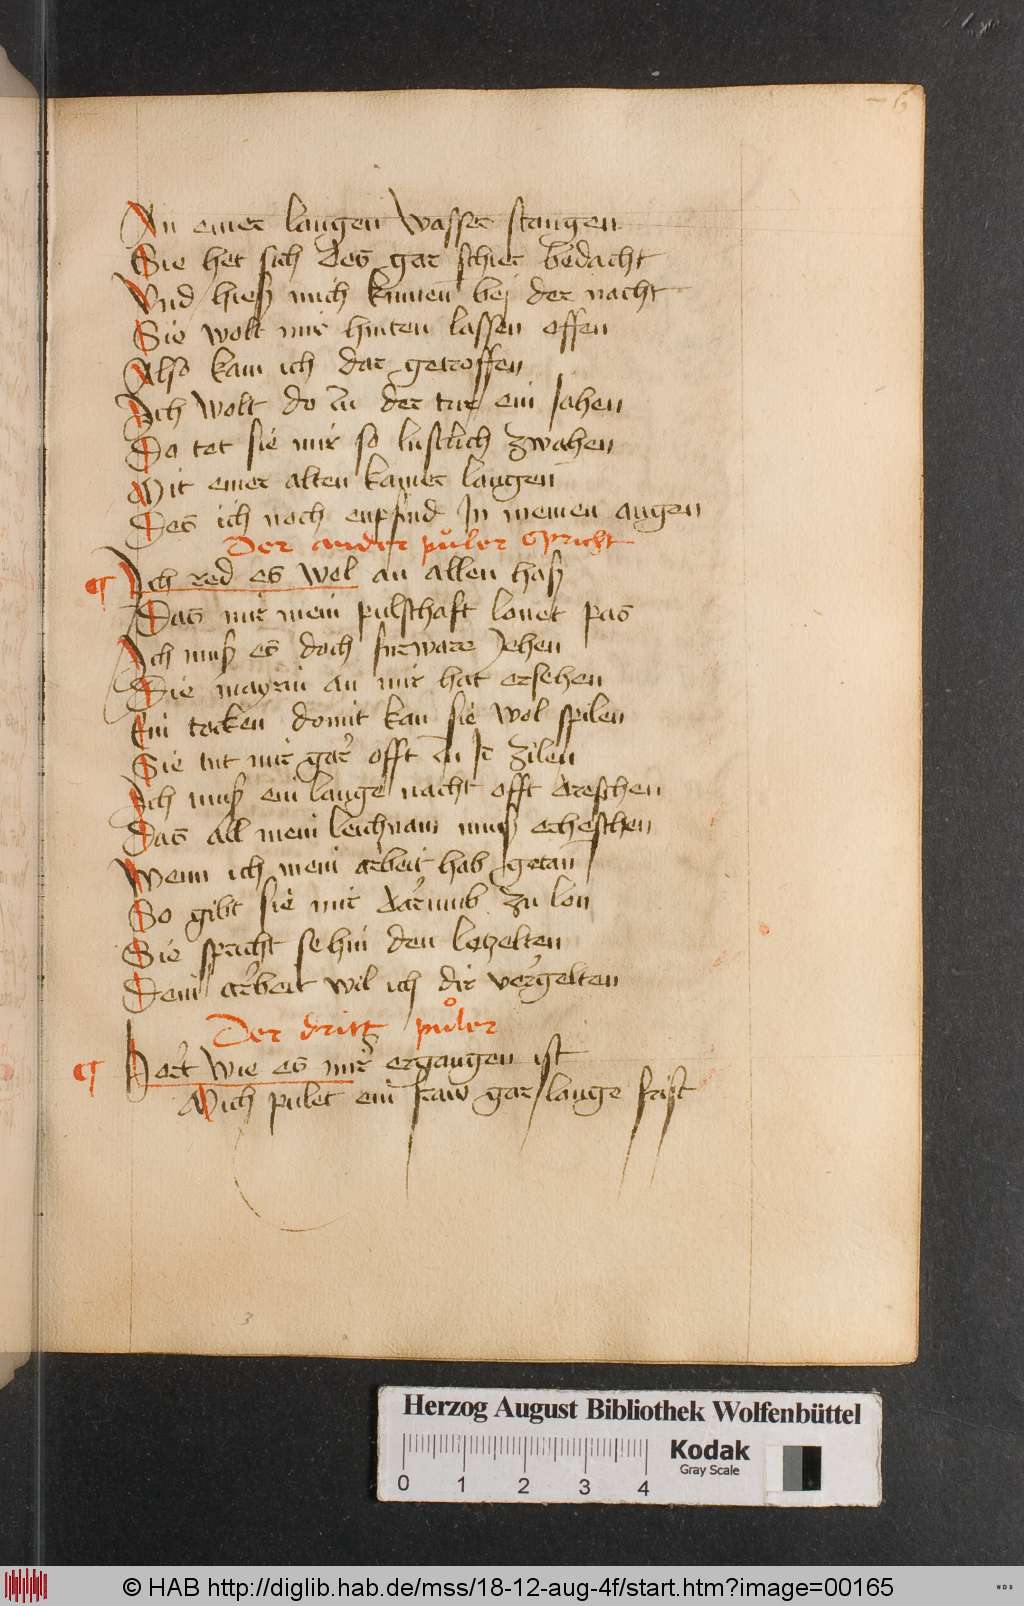 An einer langen wasser stangen
Sie het sich des gar schier bedacht
Vnd hieß mich kumen bej der nacht
Sie wolt mir hinten lassen offen
Also kam ich dar getroffen
Ich wolt do zu der tur ein sahen
Do tet sie mir so lustlich zwahen
Mit einer alten kamer laugen
Des ich noch enpfind In meinen augen
Der ander půler spricht
Ich red es wol an allen haß
Das mir mein pulschaft lonet pas
Ich muß es doch furwar Jehen
Die mayrin an mir hat ersehen
Ein tocken domit kan sie wol spilen
Sie tut mir gar offt zu Ir zilen
Ich muß ein lange nacht offt dreschen
Das all mein leichnam muß erheschen
Wenn ich mein arbeit hab getan
So gibt sie mir darumb zu lon
Sie spricht se hin den letzelten
Dein arbeit wil ich dir vergelten
Der dritt půler
Hort wie es mir ergangen ist
Mich pulet ein fraw gar lange frist
Herzog August Bibliothek Wolfenbüttel
Kodak
Gray Scale
0 1 2 3 4
© HAB http://diglib.hab.de/mss/18-12-aug-4f/start.htm?image=00165